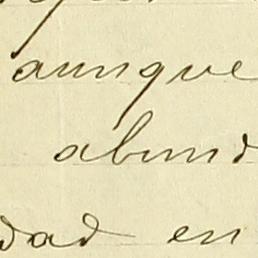 aunque
abund
dad en